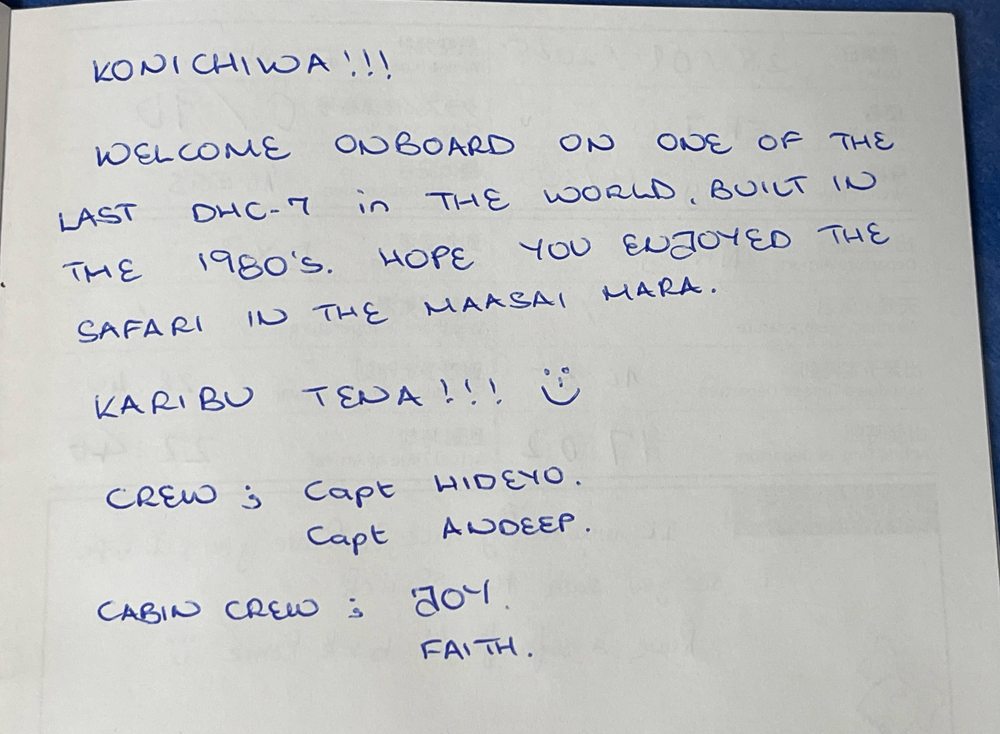 KONICHIWA!!!
WELCOME ONBOARD ON ONE OF THE
LAST DHC-7 in THE WORLD, BUILT IN
THE 1980'S. HOPE YOU ENJOYED THE
SAFARI IN THE MAASAI MARA.
KARIBU TENA!!!
CREW : Capt HIDEYO.
Capt ANDEEP.
CABIN CREW : JOY.
FAITH.